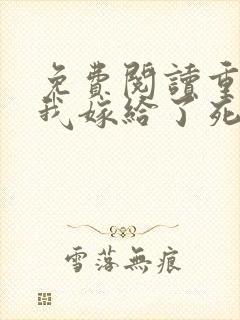 免費閱讀重
我嫁給了死
雪落無痕